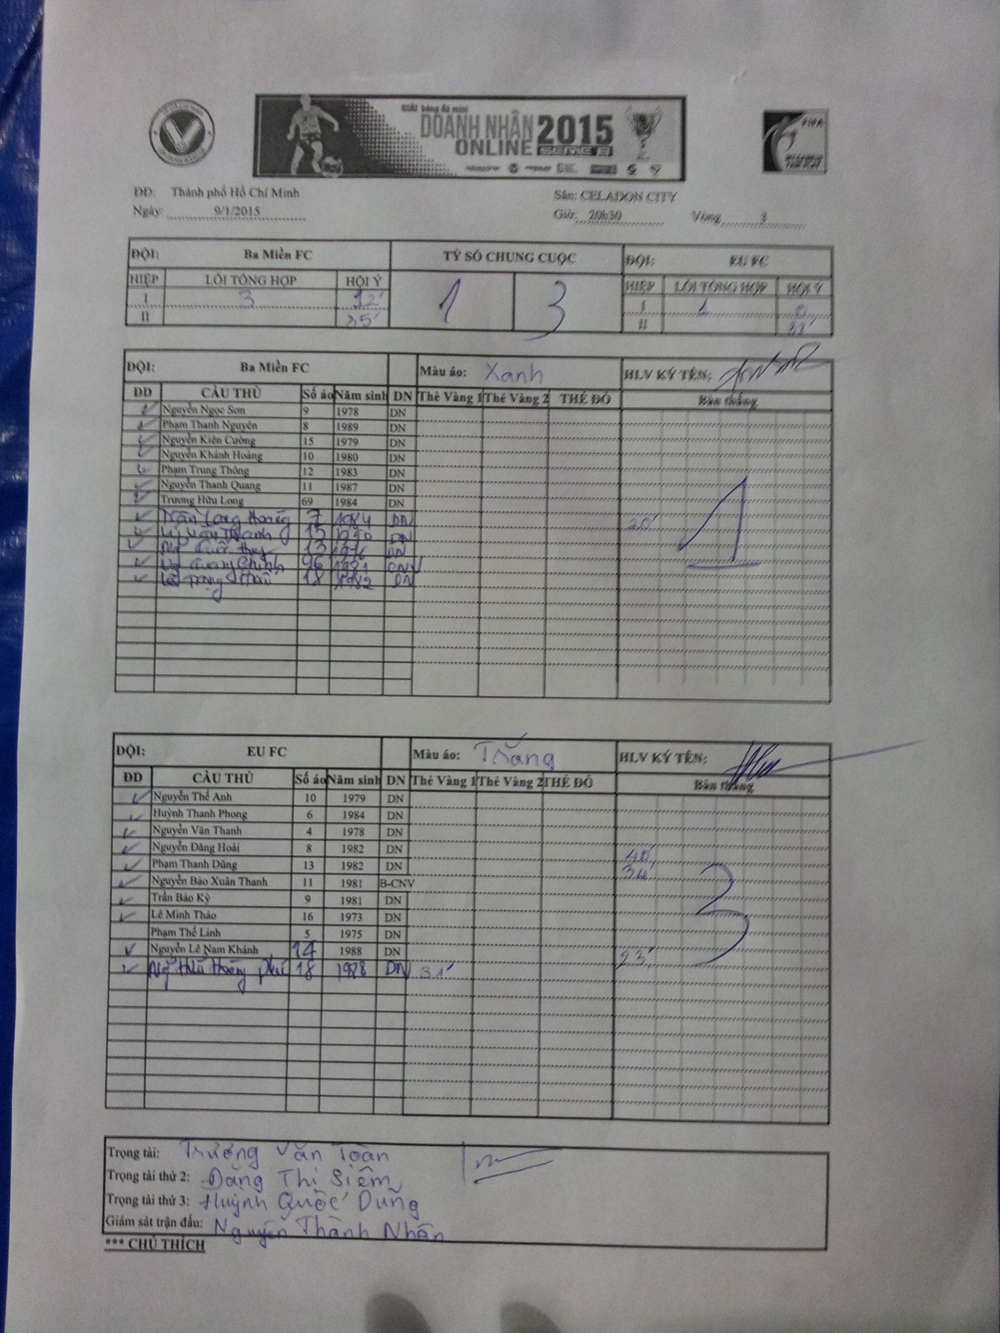 GIẢI bóng đá mini
DOANH NHÂN 2015
ONLINE SERIE B
FIFA
ĐĐ: Thành phố Hồ Chí Minh Sân: CELADON CITY
Ngày: 9/1/2015 Giờ: 20h30 Vòng 8
ĐỘI: Ba Miền FC TỶ SỐ CHUNG CUỘC ĐỘI: EU FC
HIỆP LỖI TỔNG HỢP HỘI Ý 1 3 HIỆP LỖI TỔNG HỢP HỘI Ý
I 3 12' I
II 35' II
ĐỘI: Ba Miền FC Màu áo: Xanh HLV KÝ TÊN:
ĐD CẦU THỦ Số áo Năm sinh DN Thẻ Vàng 1 Thẻ Vàng 2 THẺ ĐỎ Bàn thắng
Nguyễn Ngọc Sơn 9 1978 DN
Phạm Thanh Nguyên 8 1989 DN
Nguyễn Kiên Cường 15 1979 DN
Nguyễn Khánh Hoàng 10 1980 DN
Phạm Trung Thông 12 1983 DN
Nguyễn Thanh Quang 11 1987 DN
Trương Hữu Long 69 1984 DN
Trần Long Hoàng 7 1984 DN 20' 1
DN
13 1976 DN
96 1991 CNV
18 1982 DN
ĐỘI: EU FC Màu áo: Trắng HLV KÝ TÊN:
ĐD CẦU THỦ Số áo Năm sinh DN Thẻ Vàng 1 Thẻ Vàng 2 THẺ ĐỎ Bàn thắng
Nguyễn Thế Anh 10 1979 DN
Huỳnh Thanh Phong 6 1984 DN
Nguyễn Văn Thanh 4 1978 DN
Nguyễn Đăng Hoài 8 1982 DN 40'
Phạm Thanh Dũng 13 1982 DN 34'
Nguyễn Bảo Xuân Thanh 11 1981 B-CNV 3
Trần Bảo Kỳ 9 1981 DN
Lê Minh Thảo 16 1973 DN
Phạm Thế Linh 5 1975 DN
Nguyễn Lê Nam Khánh 14 1988 DN 23'
Ng Hữu Hoàng Phú 18 1978 DN 31'
Trọng tài: Trương Văn Toàn
Trọng tài thứ 2: Đặng Thị Siêm
Trọng tài thứ 3: Huỳnh Quốc Dũng
Giám sát trận đấu: Nguyễn Thành Nhân
*** CHÚ THÍCH